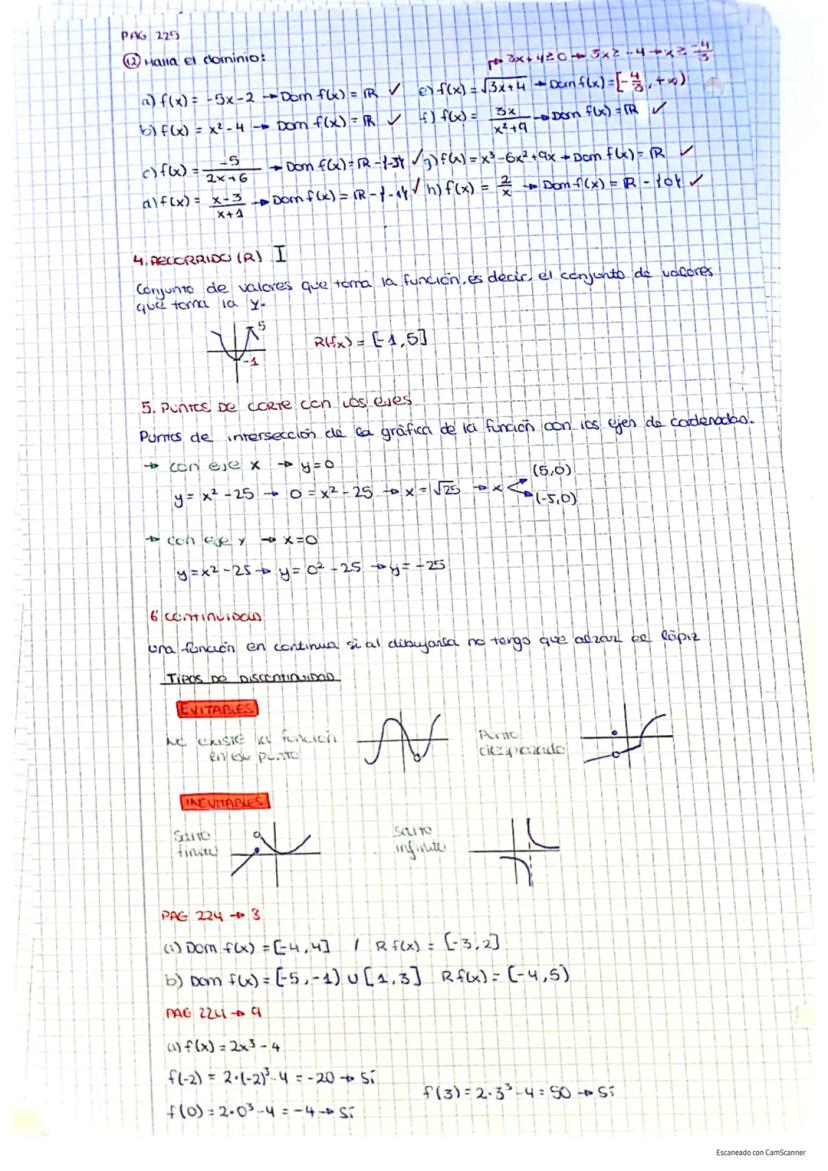 PAG 225
(12) Halla el dominio:
3x+4≥0 → 3x≥-4 → x≥ -4/3
a) f(x) = -5x-2 → Dom f(x) = ℝ ✓ e) f(x) = √3x+4 → Dom f(x) = [-4/3, +∞)
b) f(x) = x²-4 → Dom f(x) = ℝ ✓ f) f(x) = 3x/x²+9 → Dom f(x) = ℝ ✓
c) f(x) = -5/2x+6 → Dom f(x) = ℝ-{-3} ✓ g) f(x) = x³-6x²+9x → Dom f(x) = ℝ ✓
d) f(x) = x-3/x+1 → Dom f(x) = ℝ-{-1} ✓ h) f(x) = 2/x → Dom f(x) = ℝ - {0} ✓
4. RECORRIDO (R) I
Conjunto de valores que toma la función, es decir, el conjunto de valores
que toma la y.
5
-1
R(fx) = [-1,5]
5. PUNTOS DE CORTE CON LOS EJES
Puntos de intersección de la gráfica de la función con los ejes de cordenadas.
→ con eje x → y=0
y = x²-25 → 0 = x²-25 → x = √25 → x (5,0) (-5,0)
→ con eje y → x=0
y=x²-25 → y= 0²-25 → y= -25
6. CONTINUIDAD
Una función en continua si al dibujarla no tengo que alzar el lápiz
TIPOS DE DISCONTINUIDAD
EVITABLES
No existe la función
en ese punto
Punto
desplazado
INEVITABLES
Salto
finito
Salto
infinito
PAG 224 → 3
a) Dom f(x) = [-4,4] / R f(x) = [-3,2]
b) Dom f(x) = [-5,-1) U [1,3] R f(x) = (-4,5)
PAG 224 → 9
a) f(x) = 2x³-4
f(-2) = 2·(-2)³-4 = -20 → Sí
f(3) = 2·3³-4 = 50 → Sí
f(0) = 2·0³-4 = -4 → Sí
Escaneado con CamScanner